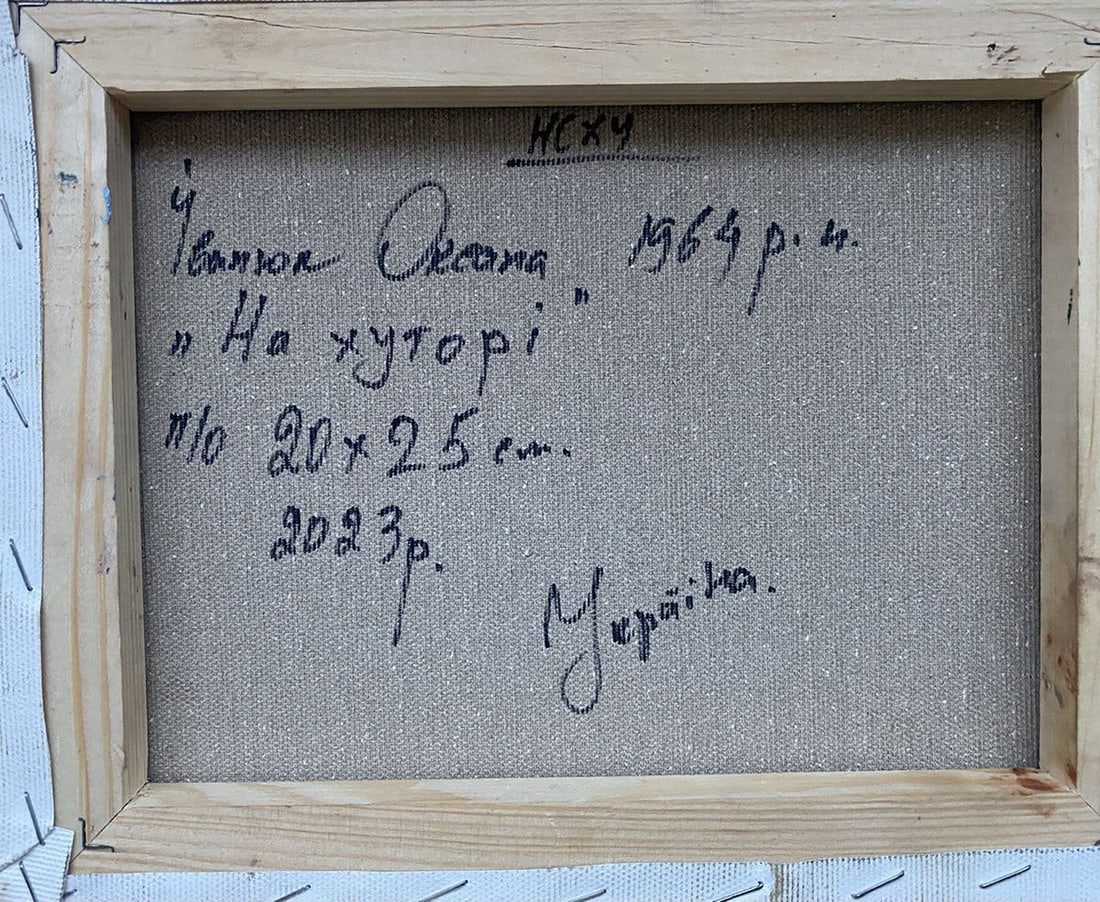 НСХУ
Іванюк Оксана 1964 р. н.
„На хуторі"
п/о 20 х 25 см.
2023р.
Україна.